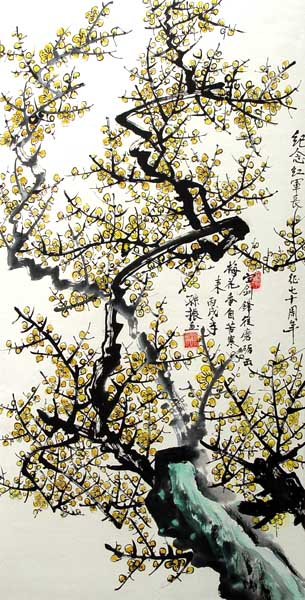 纪念红军长征七十周年
宝剑锋从磨砺出
梅花香自苦寒
来 丙戌年
孙振